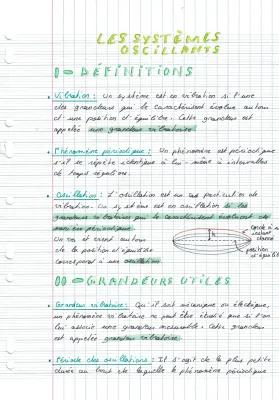 LES SYSTÈMES
OSCILLANTS
I - DÉFINITIONS
• Vibration : Un système est en vibration si l'une
des grandeurs qui le caractérisent évolue autour
d'une position d'équilibre. Cette grandeur est
appelée une grandeur vibratoire.
• Phénomène périodique : Un phénomène est périodique
s'il se répète identique à lui-même à intervalles
de temps réguliers.
• Oscillation : L'oscillation est un cas particulier de
vibration. Un système est en oscillation si les
grandeurs vibratoires qui le caractérisent évoluent de
manière périodique.
Un va et vient autour
de la position d'équilibre
correspond à une oscillation.
corde à
instant
donné
h
position
d'équilib
II - GRANDEURS UTILES
• Grandeur vibratoire : Qu'il soit mécanique ou électrique,
un phénomène vibratoire ne peut être étudié que si l'on
lui associe une grandeur mesurable. Cette grandeur
est appelée grandeur vibratoire.
• Période des oscillations : Il s'agit de la plus petite
durée au bout de laquelle le phénomène périodique